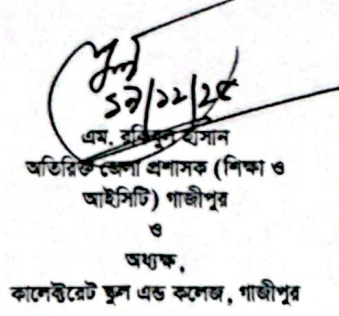 ১৯/১১/২৫
এম. রকিবুল হাসান
অতিরিক্ত জেলা প্রশাসক (শিক্ষা ও
আইসিটি) গাজীপুর
ও
অধ্যক্ষ,
কালেক্টরেট স্কুল এন্ড কলেজ, গাজীপুর